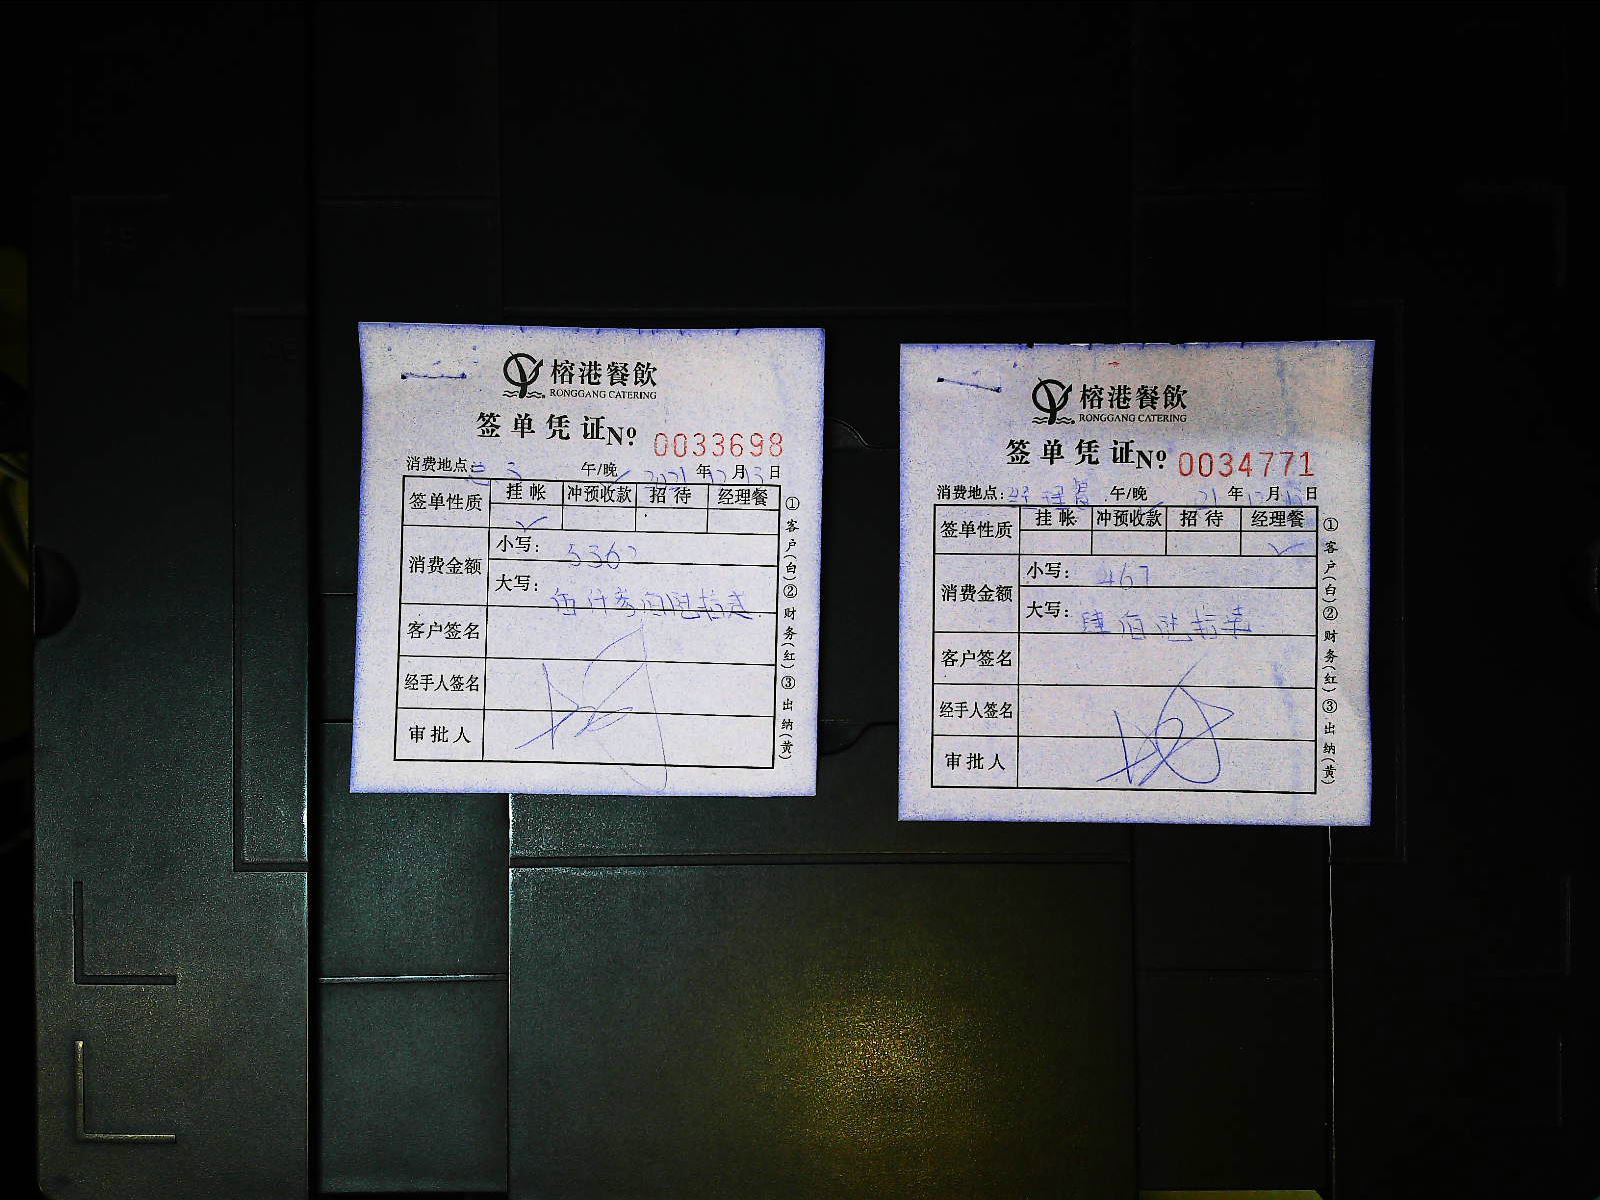 榕港餐飲
RONGGANG CATERING
签单凭证 № 0033698
消费地点: 午/晚 2021年12月13日
签单性质 挂帐 冲预收款 招待 经理餐
✓
消费金额 小写: 5367
大写: 伍仟叁佰陆拾柒
客户签名
经手人签名
审批人
①客户(白)②财务(红)③出纳(黄)
榕港餐飲
RONGGANG CATERING
签单凭证 № 0034771
消费地点: 经理餐 午/晚 21年12月13日
签单性质 挂帐 冲预收款 招待 经理餐
✓
消费金额 小写: 467
大写: 肆佰陆拾柒
客户签名
经手人签名
审批人
①客户(白)②财务(红)③出纳(黄)